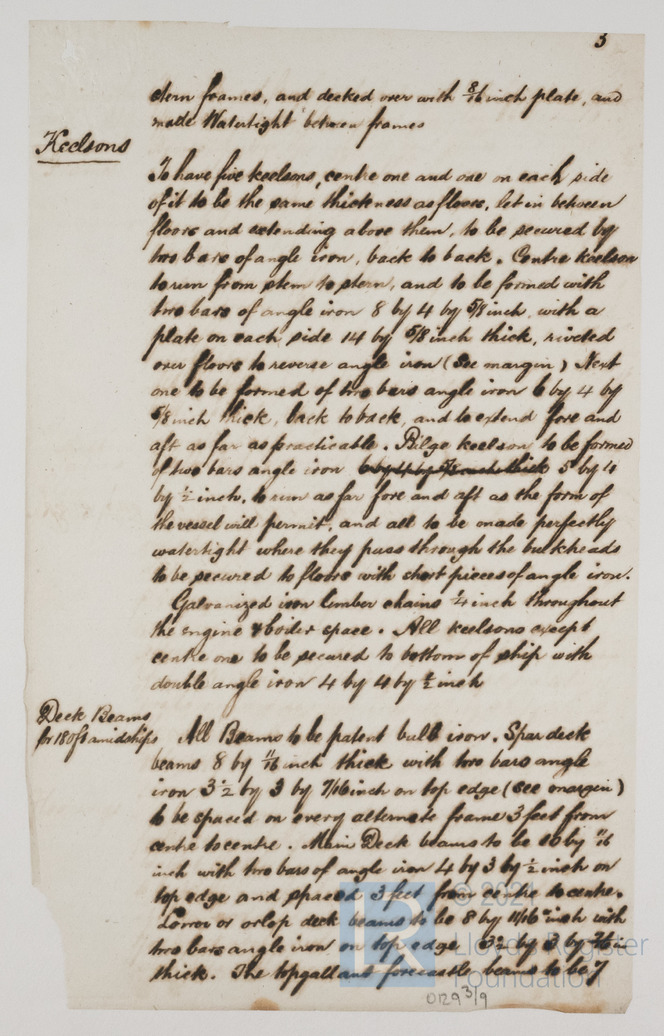 3
stern frames, and decked over with 8/16 inch plate, and
made Watertight between frames
Keelsons
To have five keelsons, centre one and one on each side
of it to be the same thickness as floors, let in between
floors and extending above them, to be secured by
two bars of angle iron, back to back. Centre keelson
to run from stem to stern, and to be formed with
two bars of angle iron 8 by 4 by 5/8 inch, with a
plate on each side 14 by 5/8 inch thick, riveted
over floors to reverse angle iron (See margin) Next
one to be formed of two bars angle iron 6 by 4 by
5/8 inch thick, back to back, and to extend fore and
aft as far as practicable. Bilge keelson to be formed
of two bars angle iron 6 by 4 by 5/8 inch thick 5 by 4
by 1/2 inch, to run as far fore and aft as the form of
the vessel will permit, and all to be made perfectly
watertight where they pass through the bulkheads
to be secured to floors with short pieces of angle iron.
Galvanized iron limber chains 1/4 inch throughout
the engine & boiler space. All keelsons except
centre one to be secured to bottom of ship with
double angle iron 4 by 4 by 1/2 inch
Deck Beams
for 180 ft amidships
All Beams to be patent bulb iron. Spar deck
beams 8 by 11/16 inch thick with two bars angle
iron 3 1/2 by 3 by 7/16 inch on top edge (see margin)
to be spaced on every alternate frame 3 feet from
centre to centre. Main Deck beams to be 10 by 11/16
inch with two bars of angle iron 4 by 3 by 1/2 inch on
top edge and spaced 3 feet from centre to centre.
Lower or orlop deck beams to be 8 by 11/16 inch with
two bars angle iron on top edge 3 1/2 by 3 by 7/16 in
thick. The topgallant forecastle beams to be 7
© 2021
Lloyd's Register
Foundation
0129 3/9